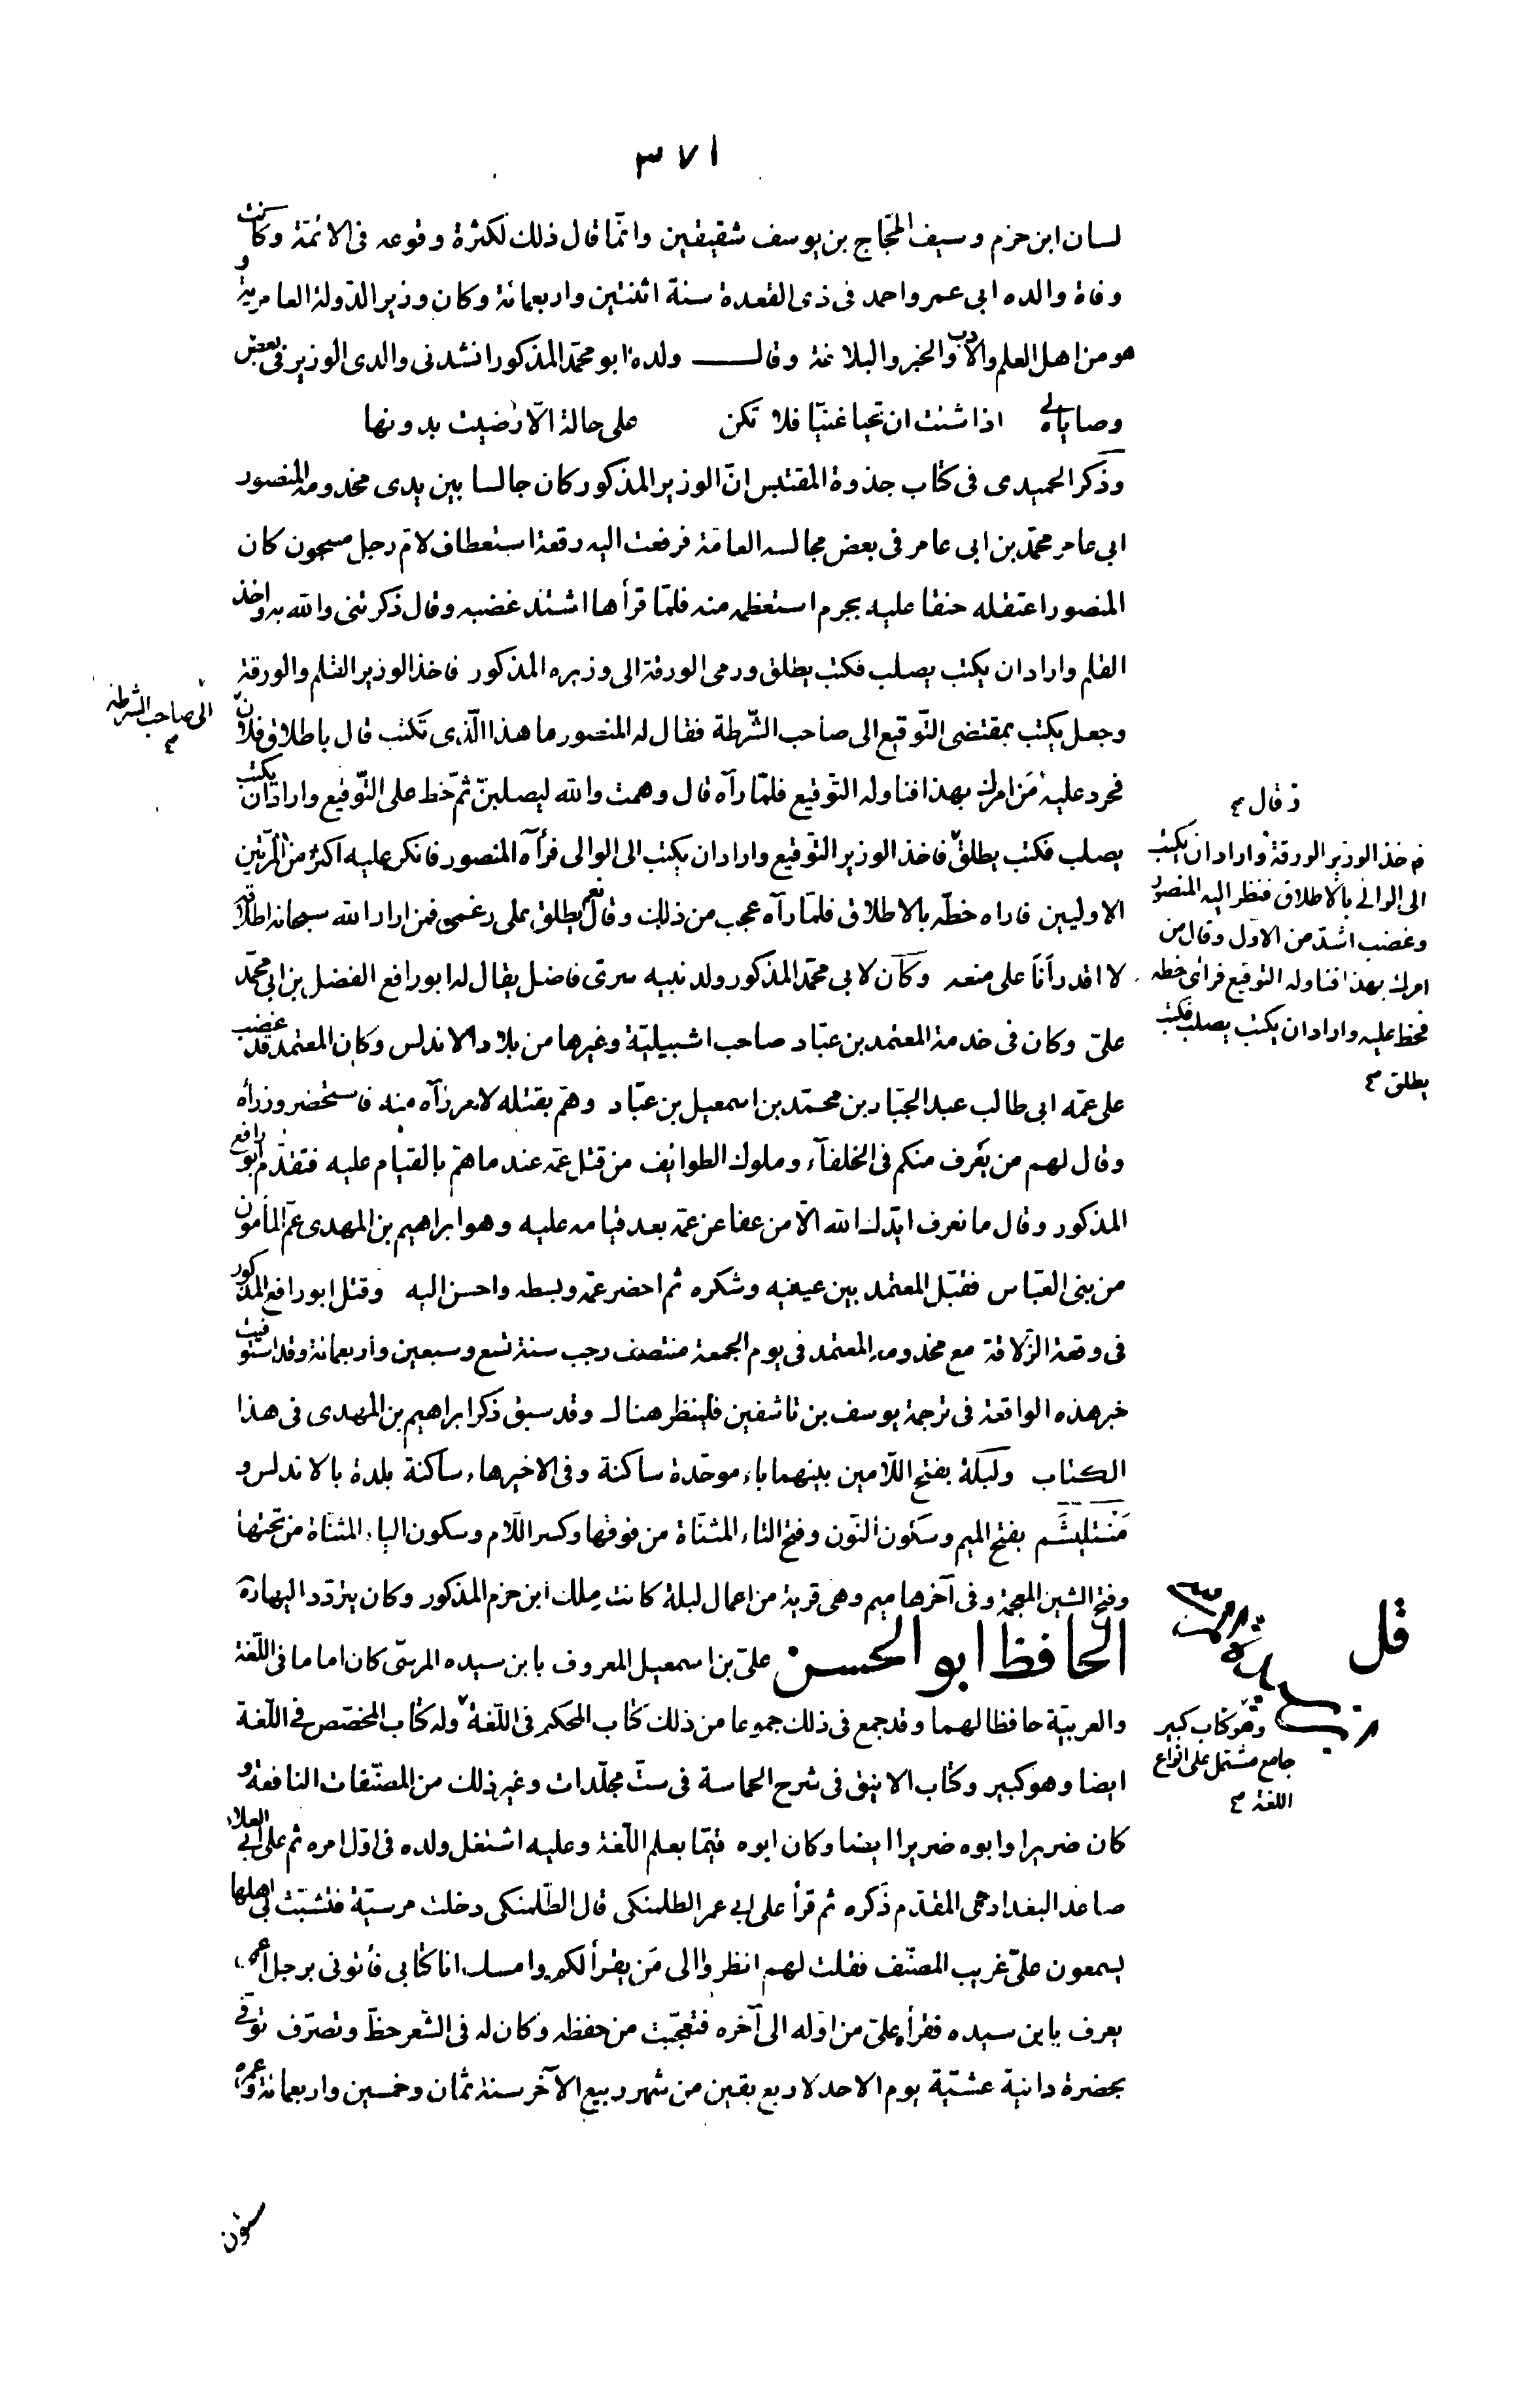 ٣٧١
لسان ابن حزم وسيف الحجّاج بن يوسف شقيقين وانّما قال ذلك لكثرة وقوعه فى الائمّة وكانت
وفاة والده ابى عمر واحمد فى ذى القعدة سنة اثنتين واربعمائة وكان وزير الدّولة العامرية و
هو من اهل العلم والادب والخبر والبلاغة وقال ولده ابو محمّد المذكور انشدنى والدى الوزير فى بعض
وصاياه لى اذا شئت ان تحيا غنيّا فلا تكن على حالة الّا رضيت بدونها
وذكر الحميدى فى كتاب جذوة المقتبس انّ الوزير المذكور كان جالسا بين يدى مخدومه المنصور
ابى عامر محمّد بن ابى عامر فى بعض مجالسه العامّة فرفعت اليه رقعة استعطاف لامّ رجل مسجون كان
المنصور اعتقله حنقا عليه بجرم استعظمه منه فلمّا قرأها اشتد غضبه وقال ذكرتنى والله به واخذ
القلم واراد ان يكتب يصلب فكتب يطلق ورمى الورقة الى وزيره المذكور فاخذ الوزير القلم والورقة
وجعل يكتب بمقتضى التّوقيع الى صاحب الشّرطة فقال له المنصور ما هذا الّذى تكتب قال باطلاق فلان
الى صاحب الشرطة
فحرد عليه مَن امرك بهذا فناوله التّوقيع فلمّا رآه قال وهمت والله ليصلبنّ ثمّ خط على التّوقيع واراد ان يكتب
يصلب فكتب يطلق فاخذ الوزير التّوقيع واراد ان يكتب الى الوالى فرأه المنصور فانكر عليه اكثر من المرّتين
الاوليين فاراه خطّه بالاطلاق فلمّا رآه عجب من ذلك وقال نعم يطلق على رغمى فمن اراد الله سبحانه اطلاقه
لا اقدر أنا على منعه وكان لابى محمّد المذكور ولد نبيه سرى فاضل يقال له ابو رافع الفضل بن ابى محمّد
علىّ وكان فى خدمة المعتمد بن عبّاد صاحب اشبيليّة وغيرها من بلاد الاندلس وكان المعتمد قد غضب
على عمّه ابى طالب عبد الجبّار بن محمّد بن اسمعيل بن عبّاد وهمّ بقتله لامر رآه منه فاستحضر وزرأه
وقال لهم من يعرف منكم فى الخلفآء وملوك الطوايف من قتل عمّه عند ما همّ بالقيام عليه فتقدّم ابو رافع
المذكور وقال ما نعرف ايّدك الله الّا من عفا عن عمّه بعد قيامه عليه وهو ابراهيم بن المهدى عمّ المأمون
من بنى العبّاس فقبّل المعتمد بين عينيه وشكره ثم احضر عمّه وبسطه واحسن اليه وقتل ابو رافع المذكور
فى وقعة الزّلاقة مع مخدومه المعتمد فى يوم الجمعة منتصف رجب سنة تسع وسبعين واربعمائة وقد استوفيت
خبر هذه الواقعة فى ترجمة يوسف بن تاشفين فلينظر هناك وقد سبق ذكر ابراهيم بن المهدى فى هذا
الكتاب ولبلة بفتح اللّامين بينهما باء موحّدة ساكنة وفى الاخير هاء ساكنة بلدة بالاندلس و
مَنْتليشَم بفتح الميم وسكون النّون وفتح التاء المثنّاة من فوقها وكسر اللّام وسكون الياء المثنّاة من تحتها
وفتح الشين المعجمة وفى آخرها ميم وهى قرية من اعمال لبلة كانت ملك ابن حزم المذكور وكان يتردّد اليها
الحافظ ابو الحسن علىّ بن اسمعيل المعروف بابن سيده المرسّى كان اماما فى اللّغة
والعربيّة حافظا لهما وقد جمع فى ذلك جموعا من ذلك كتاب المحكم فى اللّغة وله كتاب المخصّص فى اللّغة
ايضا وهو كبير وكتاب الانيق فى شرح الحماسة فى ستّ مجلّدات وغير ذلك من المصنّفات النافعة و
كان ضريرا وابوه ضريرا ايضا وكان ابوه قيّما بعلم اللّغة وعليه اشتغل ولده فى اوّل امره ثم على ابى العلاء
صاعد البغدادى المقدّم ذكره ثم قرأ على ابى عمر الطلمنكى قال الطّلمنكى دخلت مرسيّة فتشبّث بى اهلها
يسمعون علىّ غريب المصنّف فقلت لهم انظروا الى مَن يقرأ لكم وامسك انا كتابى فأتونى برجل اعمى
يعرف بابن سيده فقرأه علىّ من اوّله الى آخره فتعجّبت من حفظه وكان له فى الشّعر حظّ وتصرّف توفّى
بحضرة دانية عشيّة يوم الاحد لاربع بقين من شهر ربيع الآخر سنة ثمان وخمسين واربعمائة وعمره
ستون
وقال
فاخذ الوزير الورقة واراد ان يكتب
الى الوالى بالاطلاق فنظر اليه المنصور
وغضب اشدّ من الاوّل وقال من
امرك بهذا فناوله التوقيع فرأى خطه
فخط عليه واراد ان يكتب يصلب فكتب
يطلق
قل
وهو كتاب كبير
جامع مشتمل على انواع
اللغة